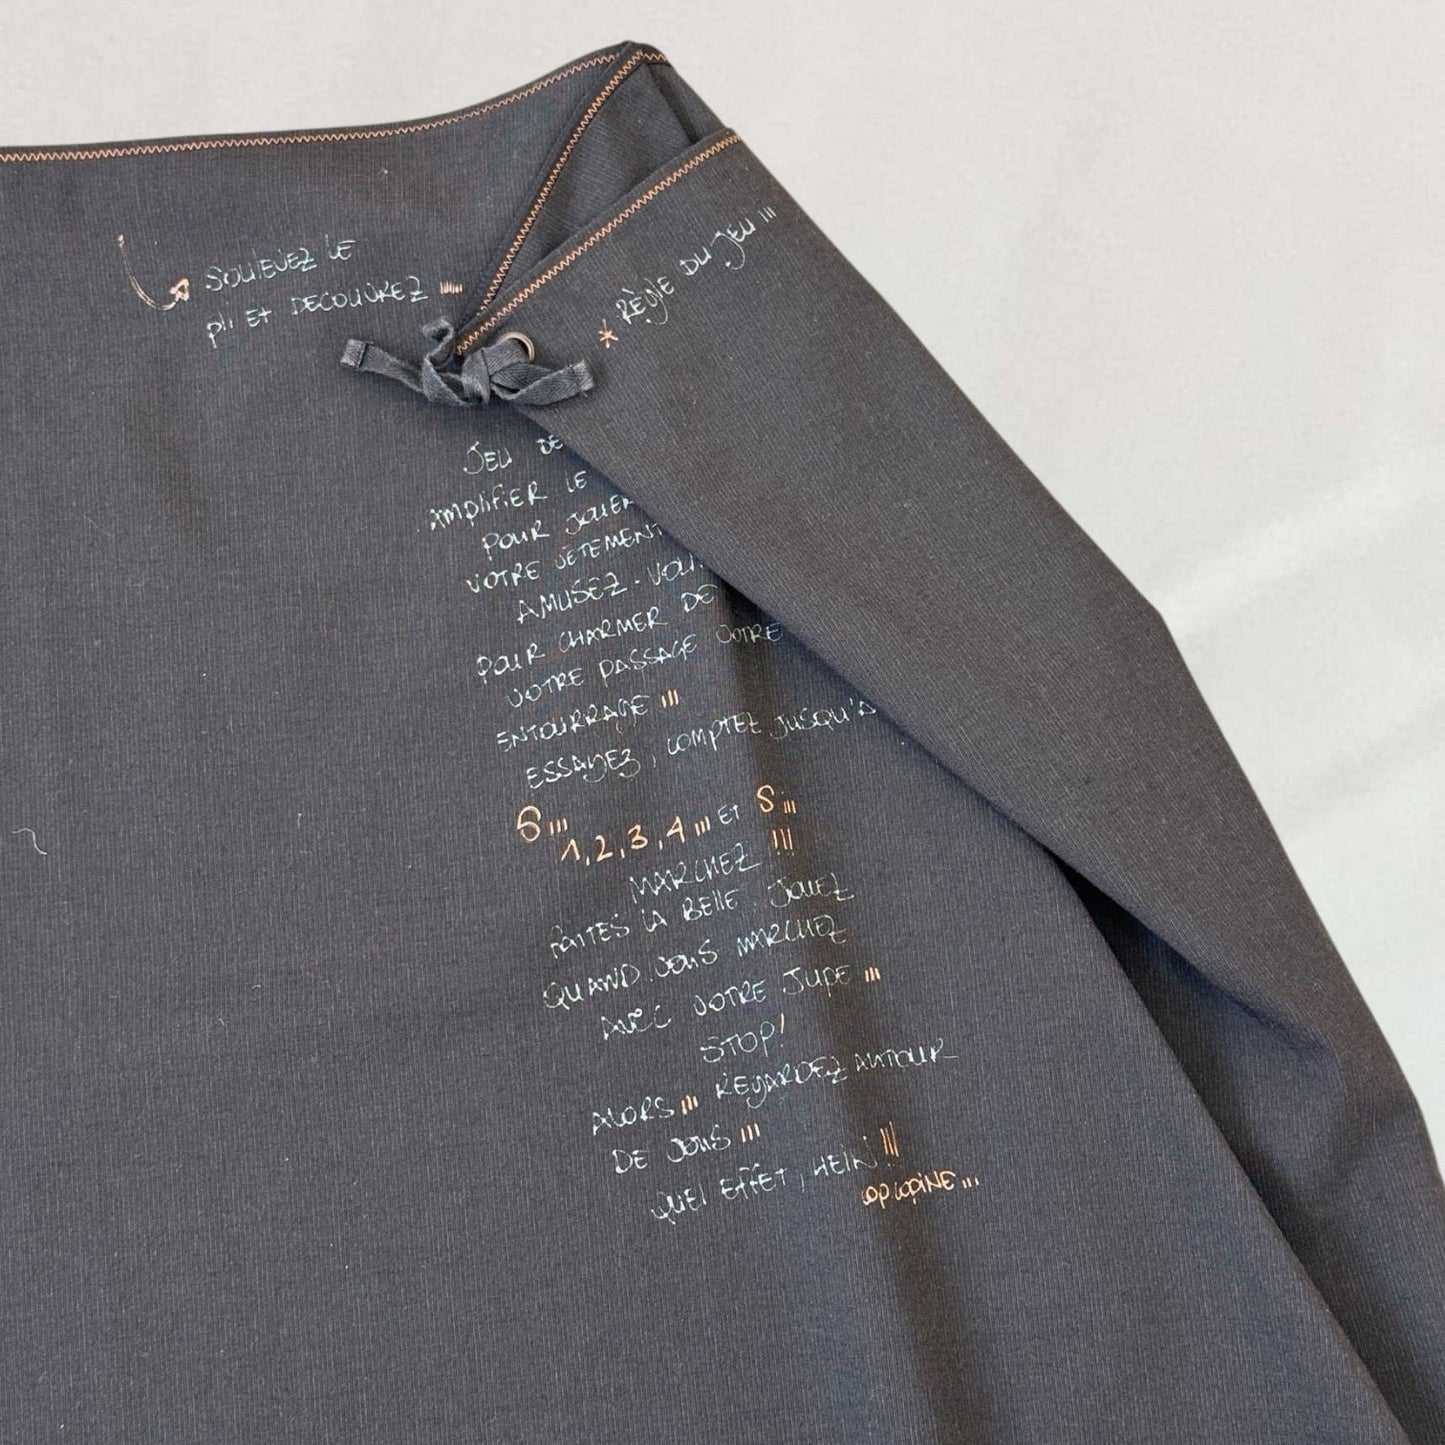 SOULEVEZ LE
pli ET DECOUVREZ !!!!!
* RÈGlE DU JEU !!!
JEU DE
AMPLIFIER LE
POUR JOUER
VOTRE VÊTEMENT
AMUSEZ-VOUS
POUR CHARMER DE
VOTRE PASSAGE VOTRE
ENTOURRAGE !!!
ESSAYEZ, COMPTEZ JUSQU'À
5 !!!
1, 2, 3, 4 !!! ET 5 !!!
MARCHEZ !!!
FAITES LA BElle. JOUEZ
QUAND VOUS MARCHEZ
AVEC VOTRE JUPE !!!
STOP!
ALORS !!! REGARDEZ AUTOUR
DE VOUS !!!
QUEl EffET, HEIN !!!
COP COPINE...